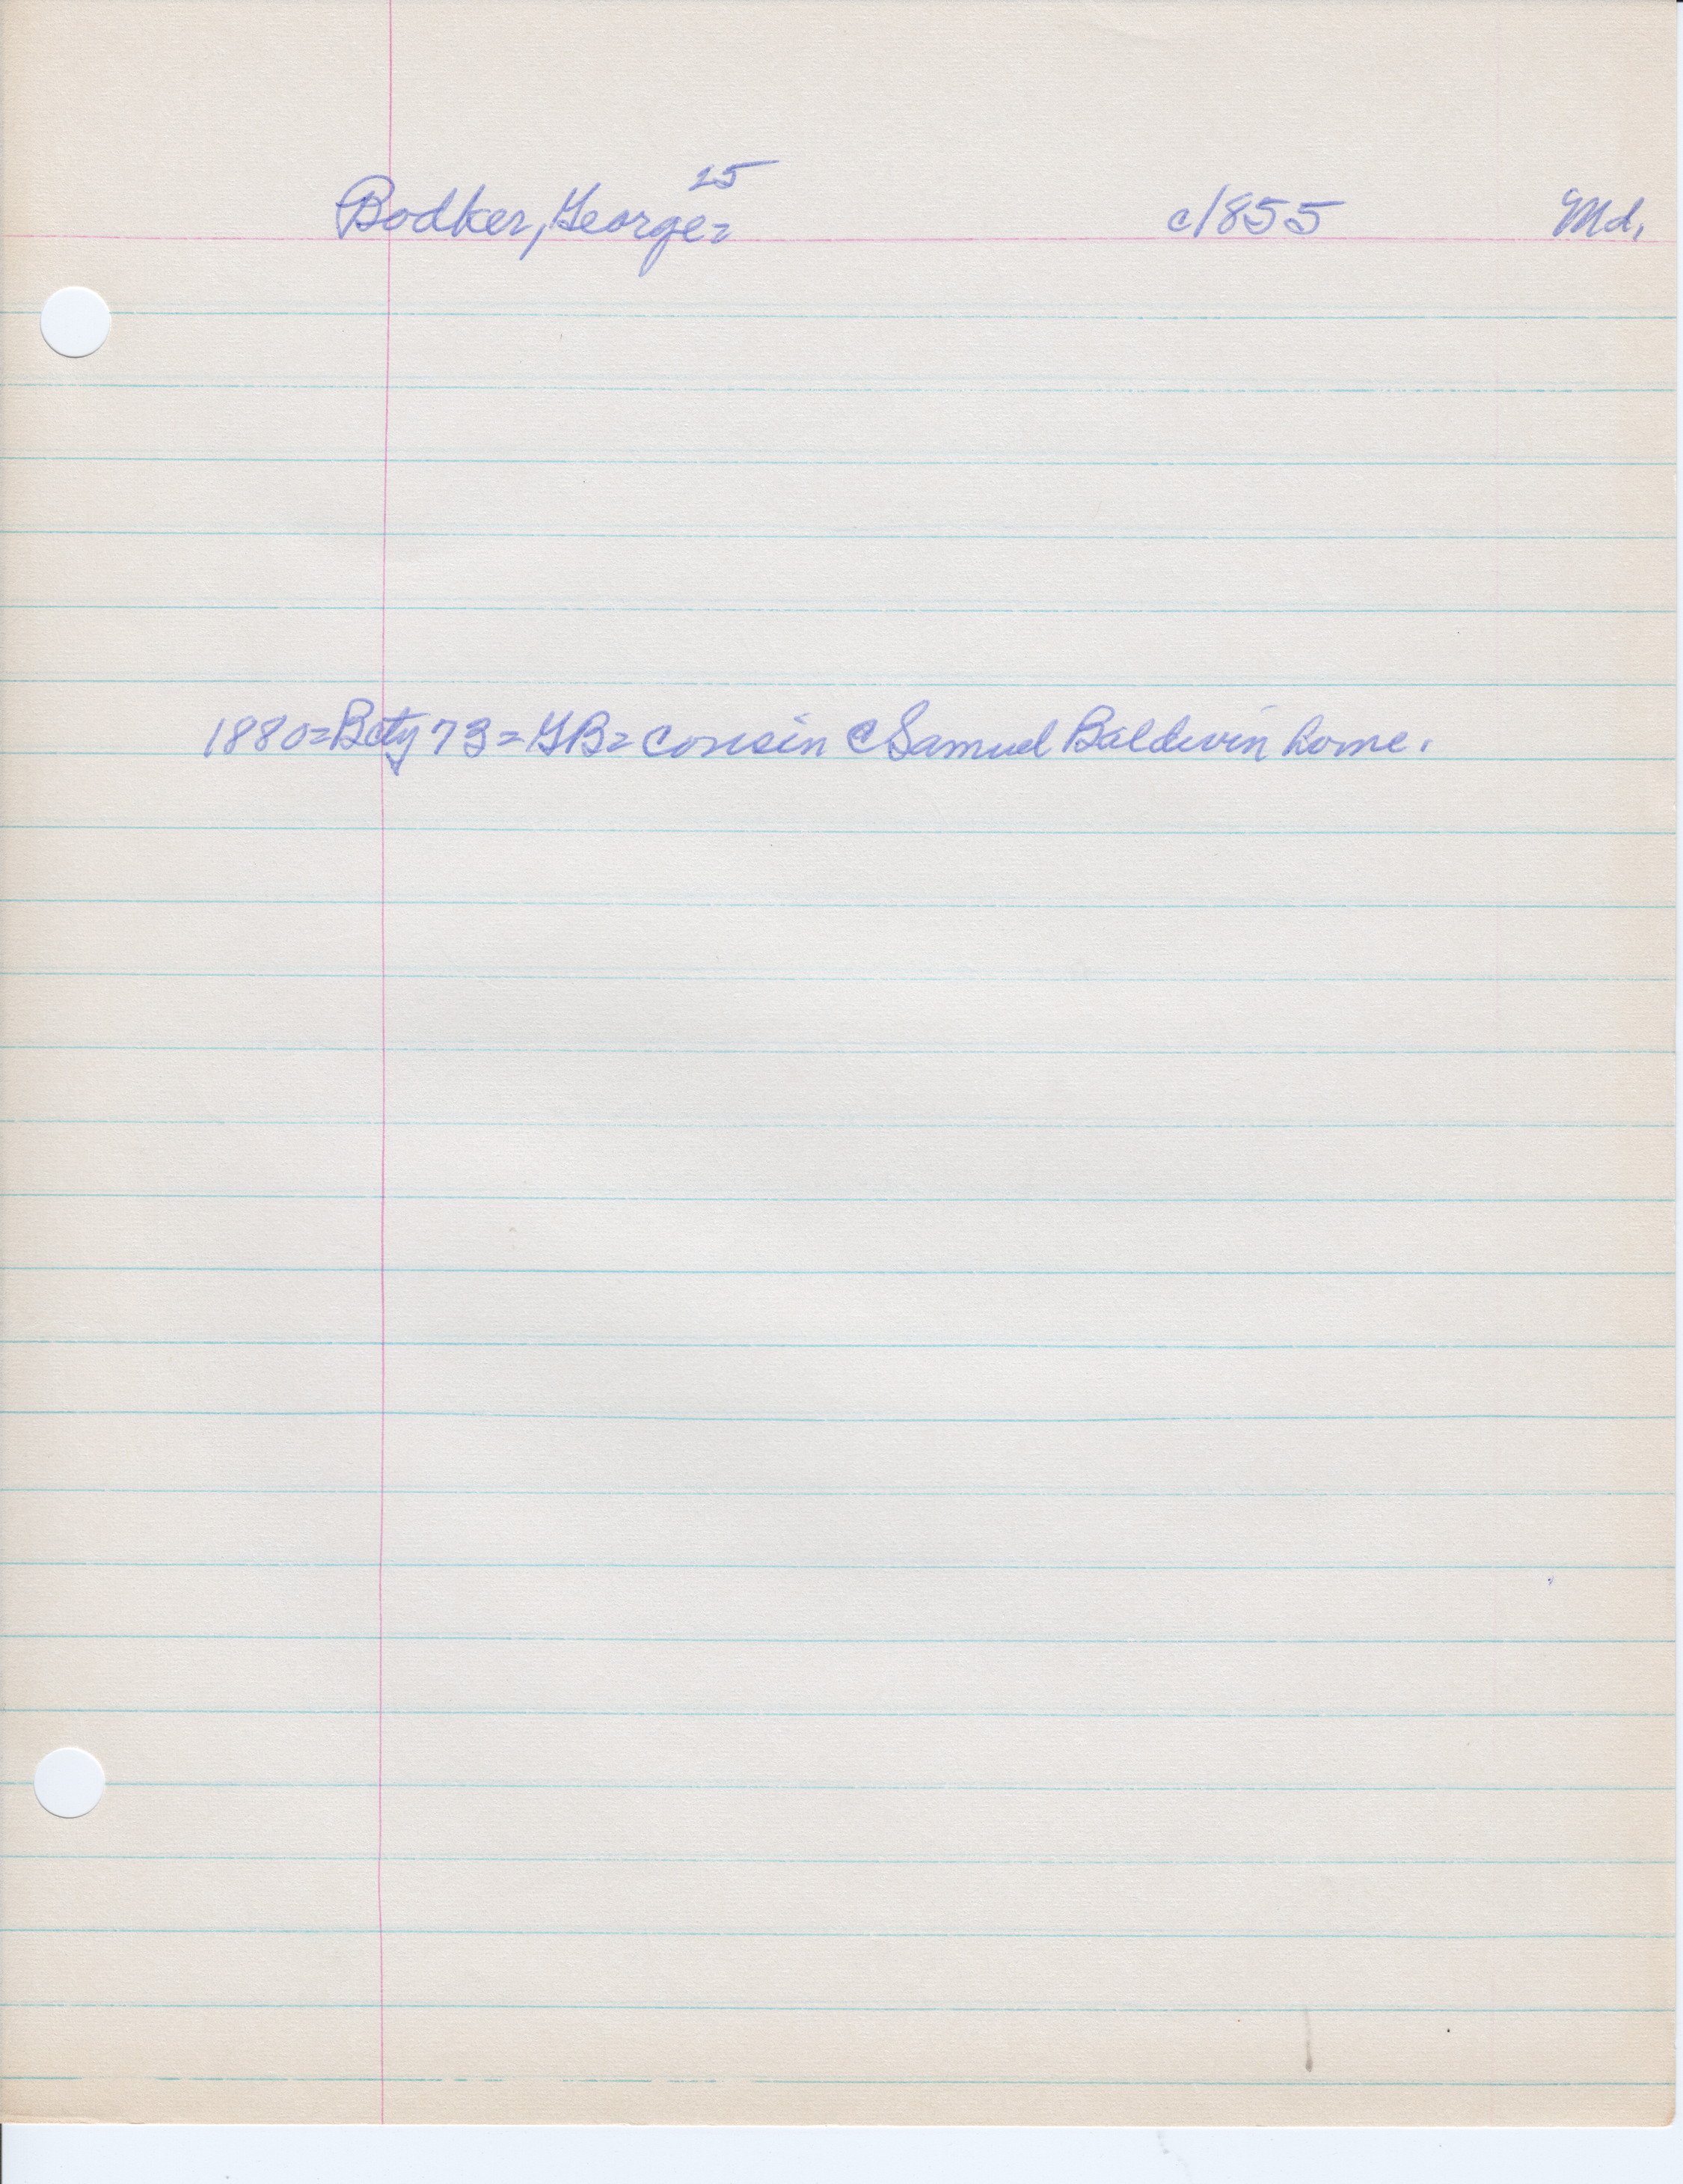 Bodker, George= 25 c1855 Md.
1880=Bcty 73=GB= cousin c Samuel Baldwin home.